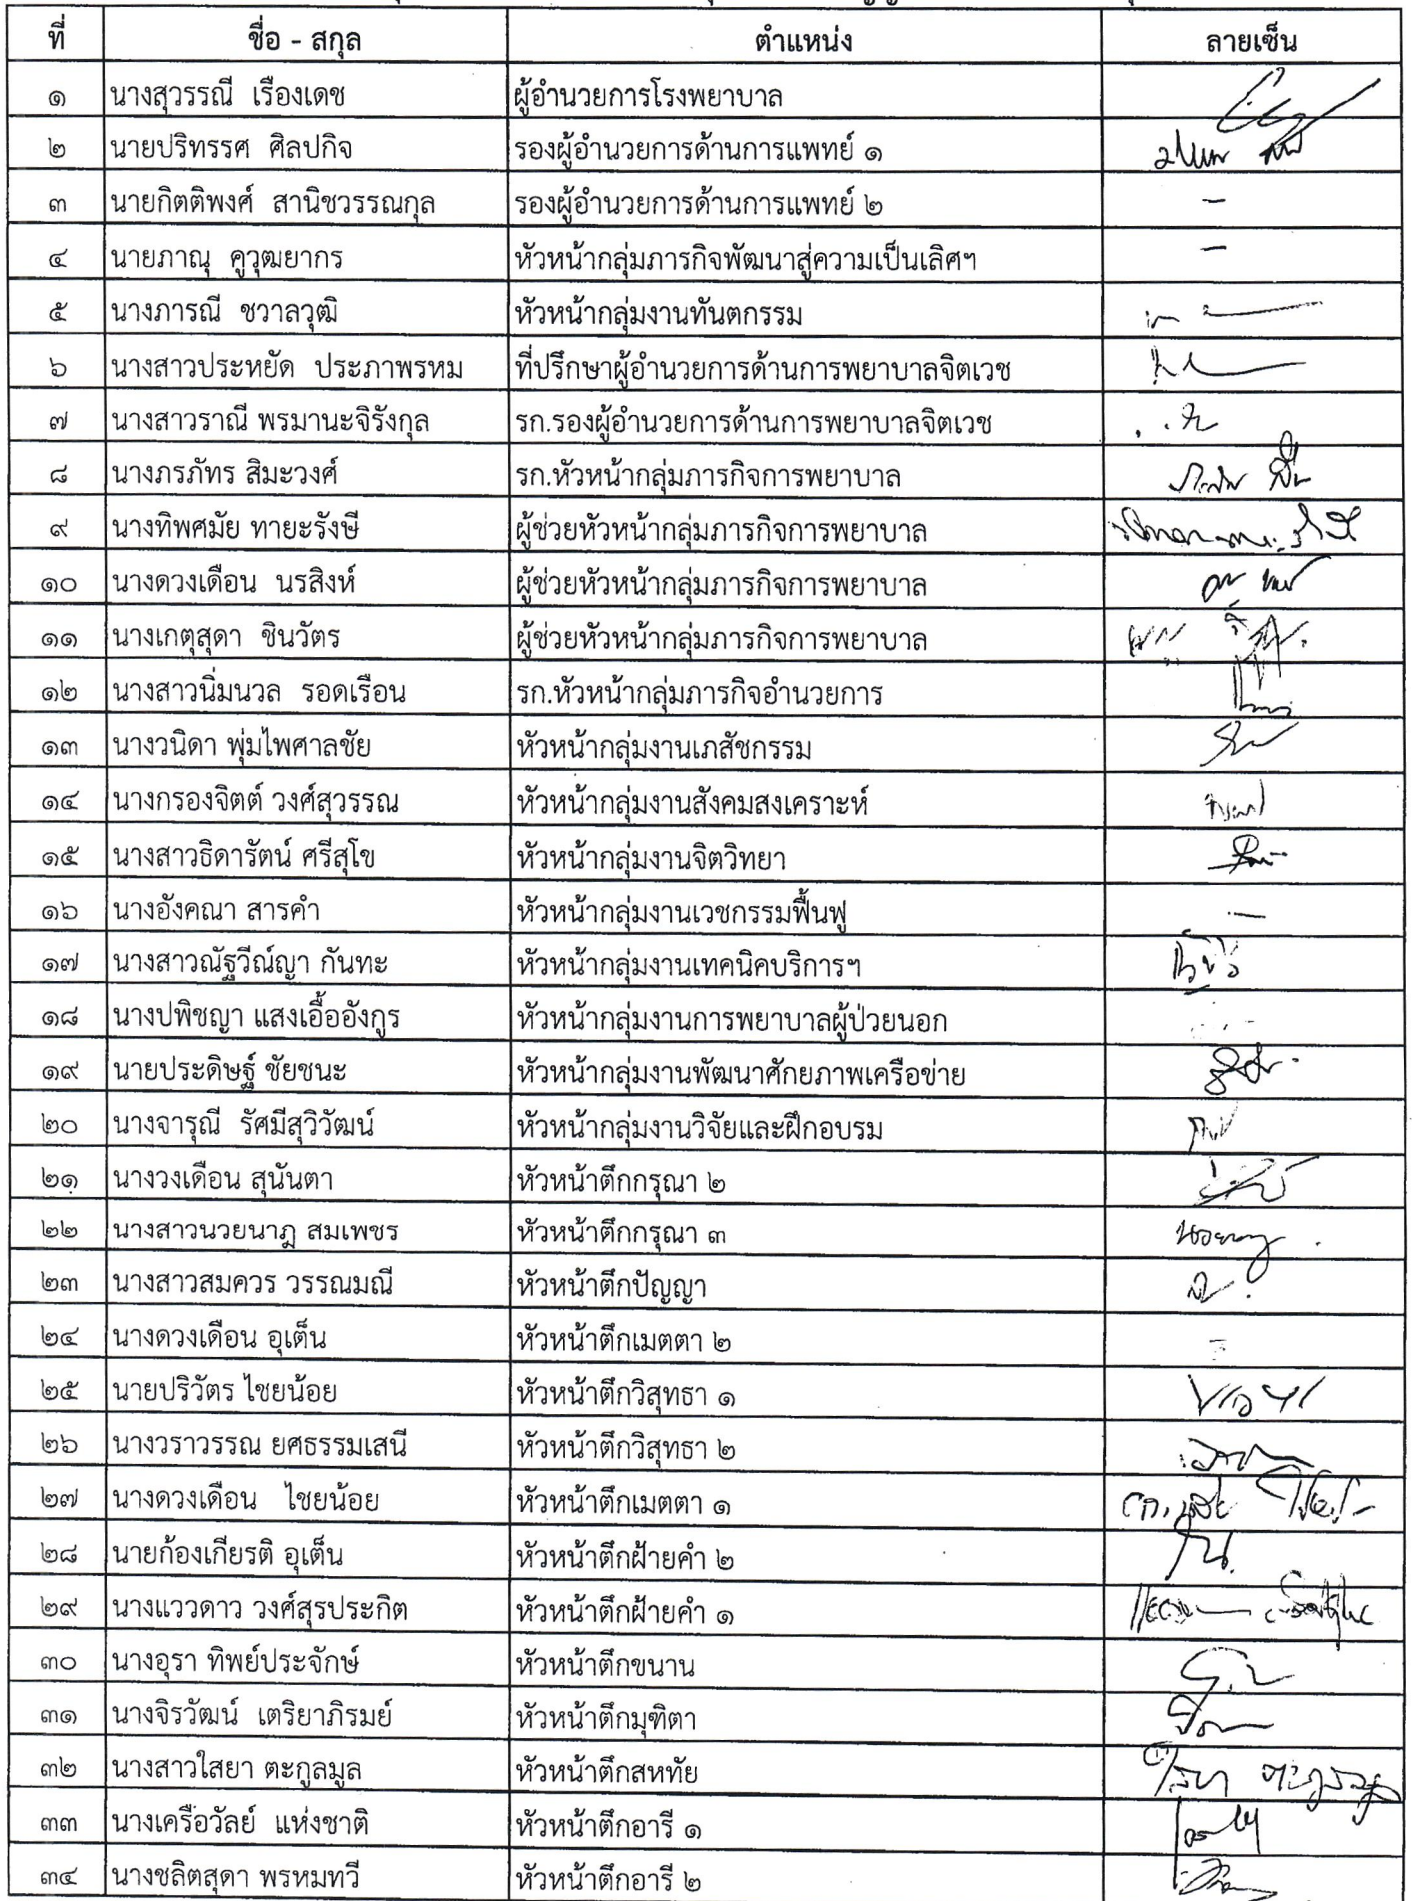 ที่ ชื่อ - สกุล ตำแหน่ง ลายเซ็น
๑ นางสุวรรณี เรืองเดช ผู้อำนวยการโรงพยาบาล
๒ นายปริทรรศ ศิลปกิจ รองผู้อำนวยการด้านการแพทย์ ๑
๓ นายกิตติพงศ์ สานิชวรรณกุล รองผู้อำนวยการด้านการแพทย์ ๒ -
๔ นายภาณุ คูวุฒยากร หัวหน้ากลุ่มภารกิจพัฒนาสู่ความเป็นเลิศฯ -
๕ นางภารณี ชวาลวุฒิ หัวหน้ากลุ่มงานทันตกรรม
๖ นางสาวประหยัด ประภาพรหม ที่ปรึกษาผู้อำนวยการด้านการพยาบาลจิตเวช
๗ นางสาวราณี พรมานะจิรังกุล รก.รองผู้อำนวยการด้านการพยาบาลจิตเวช
๘ นางภรภัทร สิมะวงศ์ รก.หัวหน้ากลุ่มภารกิจการพยาบาล
๙ นางทิพศมัย ทายะรังษี ผู้ช่วยหัวหน้ากลุ่มภารกิจการพยาบาล
๑๐ นางดวงเดือน นรสิงห์ ผู้ช่วยหัวหน้ากลุ่มภารกิจการพยาบาล
๑๑ นางเกตุสุดา ชินวัตร ผู้ช่วยหัวหน้ากลุ่มภารกิจการพยาบาล
๑๒ นางสาวนิ่มนวล รอดเรือน รก.หัวหน้ากลุ่มภารกิจอำนวยการ
๑๓ นางวนิดา พุ่มไพศาลชัย หัวหน้ากลุ่มงานเภสัชกรรม
๑๔ นางกรองจิตต์ วงศ์สุวรรณ หัวหน้ากลุ่มงานสังคมสงเคราะห์
๑๕ นางสาวธิดารัตน์ ศรีสุโข หัวหน้ากลุ่มงานจิตวิทยา
๑๖ นางอังคณา สารคำ หัวหน้ากลุ่มงานเวชกรรมฟื้นฟู -
๑๗ นางสาวณัฐวีณ์ญา กันทะ หัวหน้ากลุ่มงานเทคนิคบริการฯ
๑๘ นางปพิชญา แสงเอื้ออังกูร หัวหน้ากลุ่มงานการพยาบาลผู้ป่วยนอก
๑๙ นายประดิษฐ์ ชัยชนะ หัวหน้ากลุ่มงานพัฒนาศักยภาพเครือข่าย
๒๐ นางจารุณี รัศมีสุวิวัฒน์ หัวหน้ากลุ่มงานวิจัยและฝึกอบรม
๒๑ นางวงเดือน สุนันตา หัวหน้าตึกกรุณา ๒
๒๒ นางสาวนวยนาฎ สมเพชร หัวหน้าตึกกรุณา ๓
๒๓ นางสาวสมควร วรรณมณี หัวหน้าตึกปัญญา
๒๔ นางดวงเดือน อุเต็น หัวหน้าตึกเมตตา ๒
๒๕ นายปริวัตร ไชยน้อย หัวหน้าตึกวิสุทธา ๑
๒๖ นางวราวรรณ ยศธรรมเสนี หัวหน้าตึกวิสุทธา ๒
๒๗ นางดวงเดือน ไชยน้อย หัวหน้าตึกเมตตา ๑
๒๘ นายก้องเกียรติ อุเต็น หัวหน้าตึกฝ้ายคำ ๒
๒๙ นางแววดาว วงศ์สุรประกิต หัวหน้าตึกฝ้ายคำ ๑
๓๐ นางอุรา ทิพย์ประจักษ์ หัวหน้าตึกขนาน
๓๑ นางจิรวัฒน์ เตริยาภิรมย์ หัวหน้าตึกมุฑิตา
๓๒ นางสาวใสยา ตะกูลมูล หัวหน้าตึกสหทัย
๓๓ นางเครือวัลย์ แห่งชาติ หัวหน้าตึกอารี ๑
๓๔ นางชลิตสุดา พรหมทวี หัวหน้าตึกอารี ๒